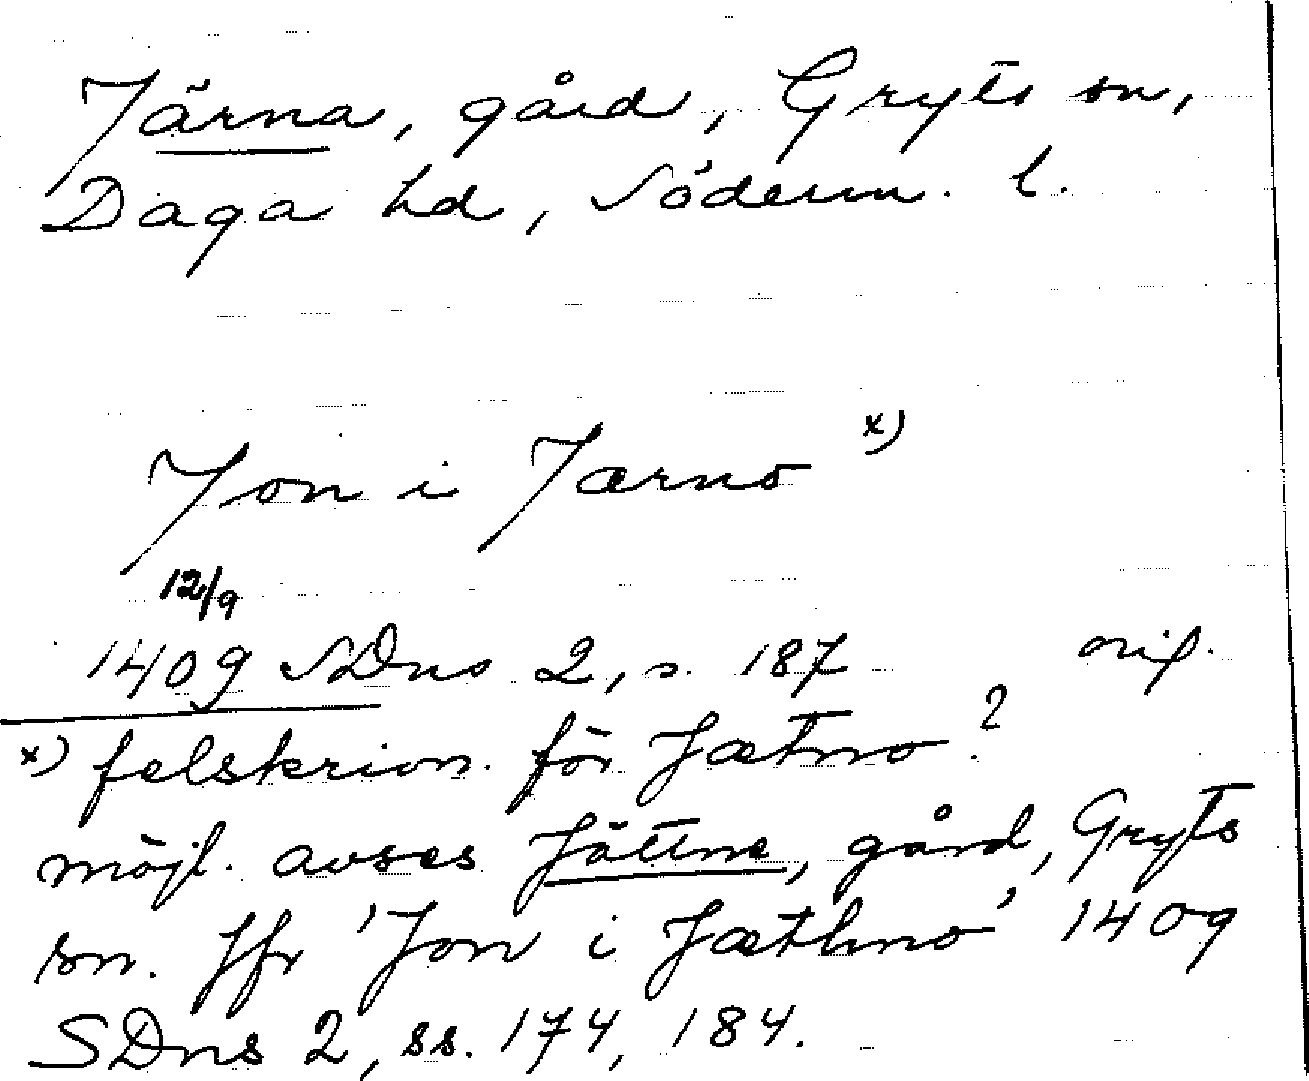 Järna, gård, Gryts sn,
Daga hd, Söderm. l.
Jon i Jærno x)
12/9
1409 SDns 2, s. 187 orig.
x) felskrivn. för Jætno?
möjl. avses Jättne, gård, Gryts
sn. Jfr 'Jon i Jæthno' 1409
SDns 2, ss. 174, 184.